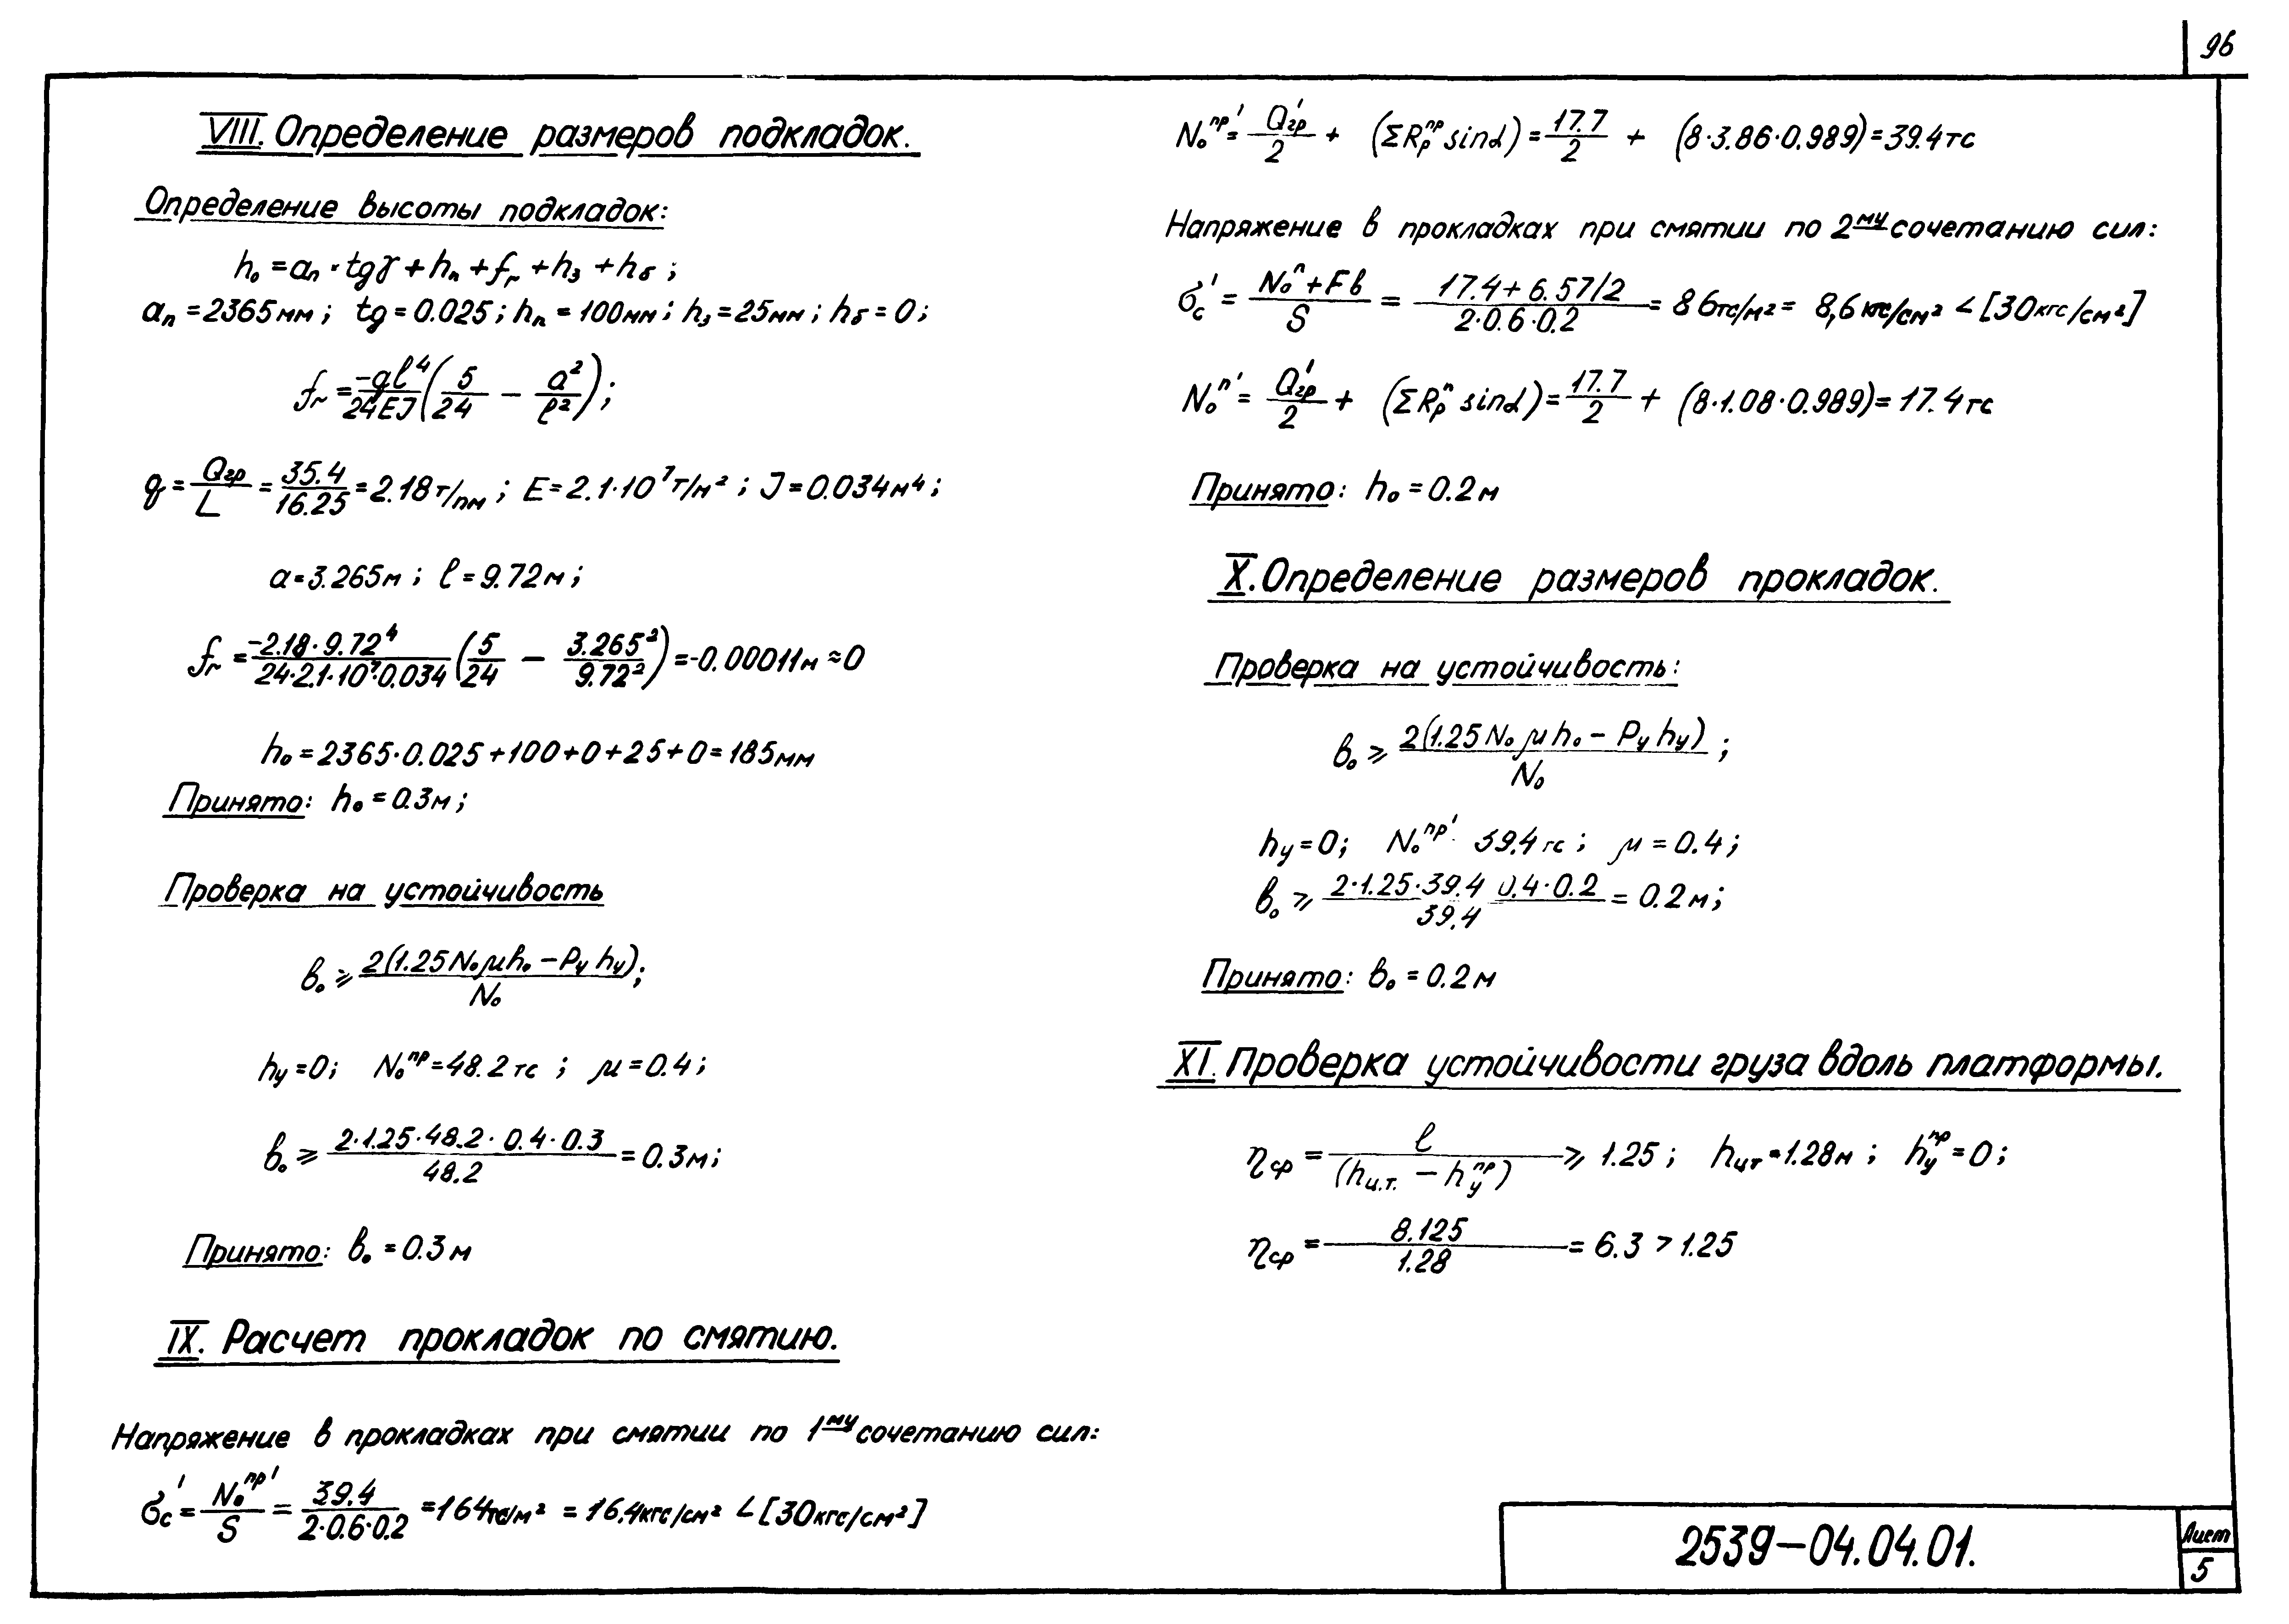 96
VIII. Определение размеров подкладок.
Определение высоты подкладок:
h₀ = aₙ · tgγ + hₙ + fᵣ + h₃ + hδ ;
aₙ = 2365мм ; tg = 0.025 ; hₙ = 100мм ; h₃ = 25мм ; hδ = 0 ;
fᵣ = -qℓ⁴/24EJ (5/24 - a²/ℓ²) ;
q = Qгр/L = 35.4/16.25 = 2.18 т/пм ; E = 2.1·10⁷ т/м² ; J = 0.034 м⁴ ;
a = 3.265м ; ℓ = 9.72м ;
fᵣ = -2.18·9.72⁴/24·2.1·10⁷·0.034 (5/24 - 3.265²/9.72²) = -0.00011м ≈ 0
h₀ = 2365·0.025 + 100 + 0 + 25 + 0 = 185мм
Принято: h₀ = 0.3м ;
Проверка на устойчивость
b₀ ⩾ 2(1.25 N₀ μ h₀ - Pу hу)/N₀ ;
hу = 0 ; N₀ᵖʳ = 48.2 тс ; μ = 0.4 ;
b₀ ⩾ 2·1.25·48.2·0.4·0.3/48.2 = 0.3м ;
Принято: b₀ = 0.3 м
IX. Расчет прокладок по смятию.
Напряжение в прокладках при смятии по 1му сочетанию сил:
σc' = N₀пр'/S = 39.4/2·0.6·0.2 = 164тс/м² = 16.4кгс/см² < [30кгс/см²]
N₀пр' = Q'гр/2 + (ΣRрпр sinα) = 17.7/2 + (8·3.86·0.989) = 39.4 тс
Напряжение в прокладках при смятии по 2му сочетанию сил:
σc' = N₀п + Fв/S = 17.4 + 6.57/2/2·0.6·0.2 = 86тс/м² = 8,6 кгс/см² < [30кгс/см²]
N₀п' = Q'гр/2 + (ΣRрп sinα) = 17.7/2 + (8·1.08·0.989) = 17.4 тс
Принято: h₀ = 0.2 м
X. Определение размеров прокладок.
Проверка на устойчивость:
b₀ ⩾ 2(1.25 N₀ μ h₀ - Pу hу)/N₀ ;
hу = 0 ; N₀пр' 39.4 тс ; μ = 0.4 ;
b₀ ⩾ 2·1.25·39.4 0.4·0.2/39.4 = 0.2 м ;
Принято: b₀ = 0.2 м
XI. Проверка устойчивости груза вдоль платформы.
ηср = ℓ/(hц.т. - hупр) ⩾ 1.25 ; hцт = 1.28м ; hупр = 0 ;
ηср = 8.125/1.28 = 6.3 > 1.25
2539-04.04.01.
Лист
5